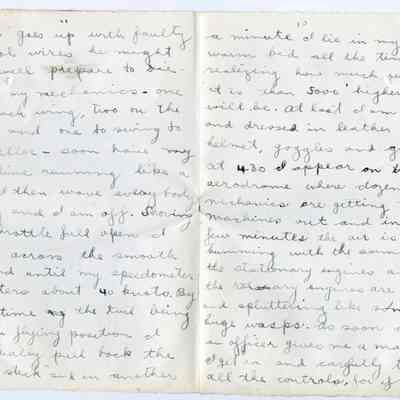 11
goes up with faulty
wires he might
well prepare to die.
my mechanics - one
each wing, two on the
and one to swing to
- soon have my
running like a
then wave everybody
and I am off. Shoving
throttle full open I
across the smooth
until my speedometer
about 40 knots. By
time the tail being
flying position I
pull back the
stick" and in another
10
a minute I lie in my
warm bed all the time
realizing how much
it is than 5000' higher
will be. At last I am
and dressed in leather
helmet, goggles and
at 4.30 I appear on
aerodrome where dozens
mechanics are getting
machines out and in
few minutes the air is
humming with the
the stationary engines
the rotary engines are
and spluttering like
huge wasps. As soon
an officer gives me a
I get in and carefully
all the controls, for if